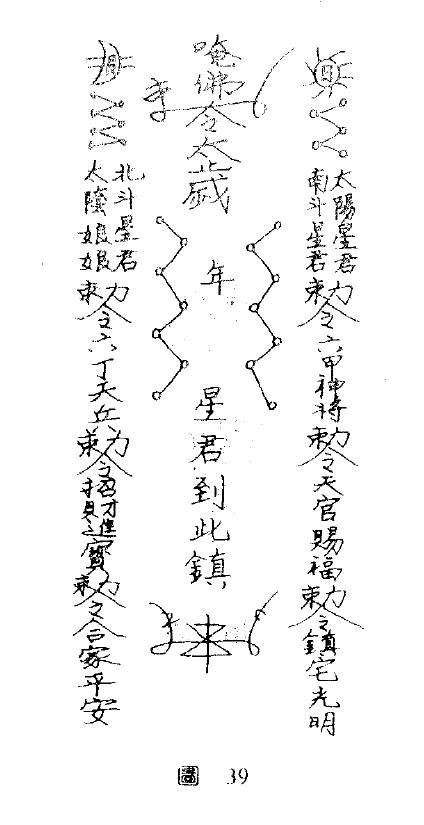 太陽星君
南斗星君
勅令六甲神將勅令天官賜福勅令鎮宅光明
唵佛令太歲
年
星君到此鎮
北斗星君
太陰娘娘
勅令六丁天兵勅令招財進寶勅令合家平安
圖 39